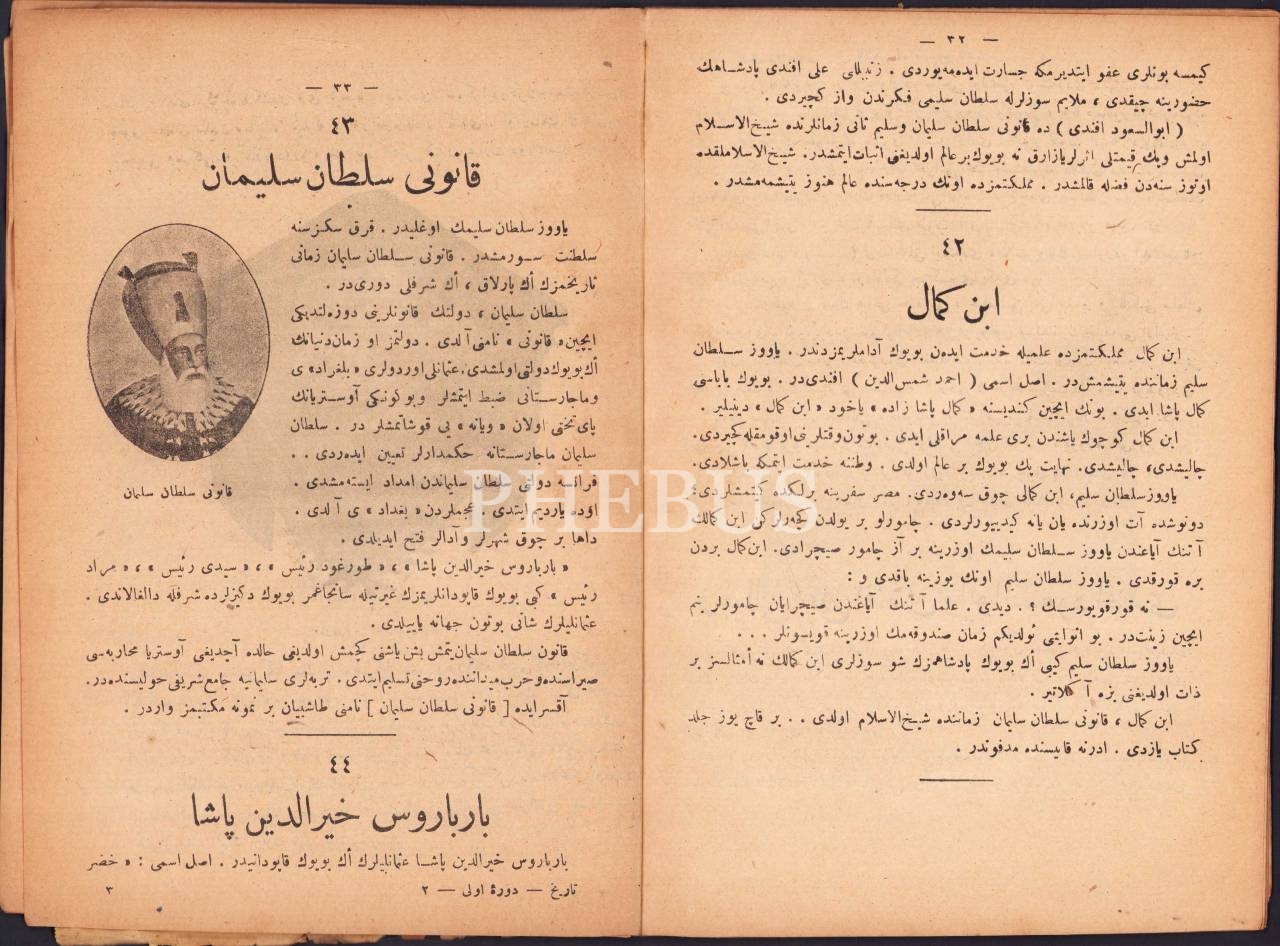 — ٣٢ —
كیمسه بونلری عفو ایتدیرمكه جسارت ایده مه یوردی . زنبیللی علی افندی پادشاهك
حضورینه چیقدی ، ملایم سوزلرله سلطان سلیمی فكرندن واز كچیردی .
( ابوالسعود افندی ) ده قانونی سلطان سلیمان وسلیم ثانی زمانلرنده شیخ‌الاسلام
اولمش وپك قیمتلی اثرلر یازارق نه بویوك بر عالم اولدیغنی اثبات ایتمشدر . شیخ‌الاسلاملقده
اوتوز سنه‌دن فضله قالمشدر . مملكتمزده اونك درجه‌سنده عالم هنوز یتیشمه‌مشدر .
٤٢
ابن كمال
ابن كمال مملكتمزده علمیله خدمت ایدەن بویوك آداملریمزدندر . یاووز سلطان
سلیم زماننده یتیشمش‌در . اصل اسمی ( احمد شمس‌الدین ) افندی‌در . بویوك باباسی
كمال پاشا ایدی . بونك ایچین كندیسنه « كمال پاشا زاده » یاخود « ابن كمال » دینیلیر .
ابن كمال كوچوك یاشندن بری علمه مراقلی ایدی . بوتون وقتلرینی اوقومقله كچیردی.
چالیشدی، چالیشدی. نهایت پك بویوك بر عالم اولدی . وطننه خدمت ایتمكه باشلادی.
یاووز سلطان سلیم، ابن كمالی چوق سه‌وه‌ردی. مصر سفرینه برلكده كیتمشلردی؛
دونوشده آت اوزرنده یان یانه كیدییورلردی . چامورلو بر یولدن كچه‌رلركن ابن كمالك
آتنك آیاغندن یاووز سلطان سلیمك اوزرینه بر آز چامور صیچرادی. ابن كمال بردن
بره قورقدی . یاووز سلطان سلیم اونك یوزینه باقدی و :
— نه قورقویورسك ؟ . دیدی . علما آتنك آیاغندن صیچرایان چامورلر بنم
ایچین زینت‌در . بو اثوابیمی ئولدیكم زمان صندوقه‌مك اوزرینه قویسونلر . . .
یاووز سلطان سلیم كیبی أك بویوك پادشاهمزك شو سوزلری ابن كمالك نه أمثالسز بر
ذات اولدیغنی بزه آكلاتیر .
ابن كمال ، قانونی سلطان سلیمان زماننده شیخ‌الاسلام اولدی . . بر قاچ یوز جلد
كتاب یازدی . ادرنه قاپیسنده مدفوندر .
— ٣٣ —
٤٣
قانونی سلطان سلیمان
یاووز سلطان سلیمك اوغلیدر . قرق سكز سنه
سلطنت سورمشدر . قانونی سلطان سلیمان زمانی
تاریخمزك أك پارلاق ، أك شرفلی دوری‌در .
سلطان سلیمان ، دولتك قانونلرینی دوزەلتدیكی
ایچین « قانونی » نامنی آلدی . دولتمز او زمان دنیانك
أك بویوك دولتی اولمشدی. عثمانلی اوردولری « بلغراد» ی
وماجارستانی ضبط ایتمشلر وبوكونكی آوستریانك
پای تختی اولان « ویانه » یی قوشاتمشلر در . سلطان
سلیمان ماجارستانه حكمدارلر تعیین ایده‌ردی . .
فرانسه دولتی سلطان سلیماندن امداد ایسته‌مشدی .
اوده یاردیم ایتدی . عجملردن « بغداد » ی آلدی .
داها بر چوق شهرلر وآدالر فتح ایدیلدی .
قانونی سلطان سلیمان
« بارباروس خیرالدین پاشا » ، « طورغود رئیس » ، « سیدی رئیس » ، « مراد
رئیس » كبی بویوك قاپودانلریمزك غیرتیله سانجاغمز بویوك دكیزلرده شرفله دالغالاندی .
عثمانلیلرك شانی بوتون جهانه یاییلدی .
قانون سلطان سلیمان یتمش بش یاشنی كچمش اولدیغی حالده آچدیغی آوستریا محاربه‌سی
صیراسنده وحرب میداننده روحنی تسلیم ایتدی . تربه‌لری سلیمانیه جامع شریفی حولیسنده‌در.
آقسرایده [ قانونی سلطان سلیمان ] نامنی طاشییان بر نمونه مكتبمز واردر .
٤٤
بارباروس خیرالدین پاشا
بارباروس خیرالدین پاشا عثمانلیلرك أك بویوك قاپودانیدر . اصل اسمی : « خضر
تاریخ — دورۀ اولی — ٢
٣
PHEBUS